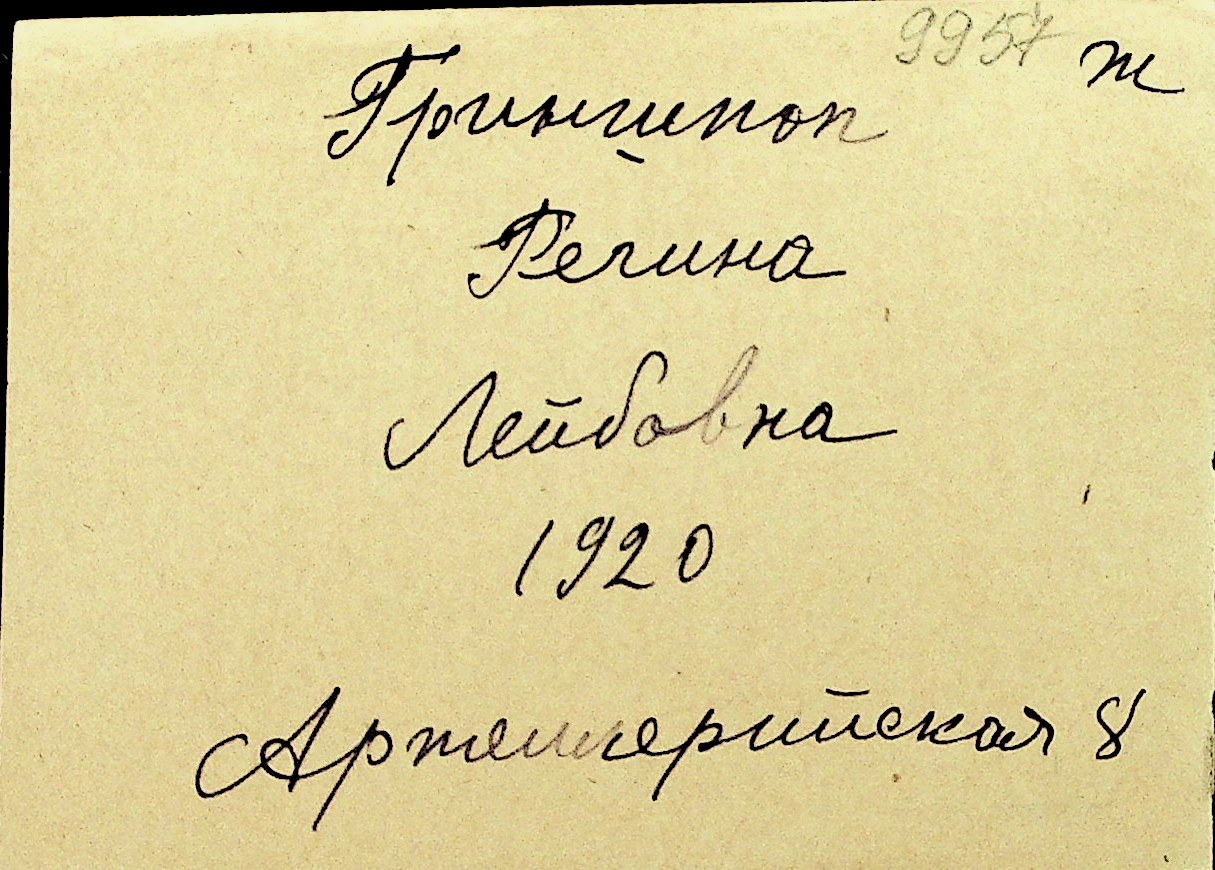 9957 ж
Гриншпон
Регина
Лейбовна
1920
Артиллерийская 8